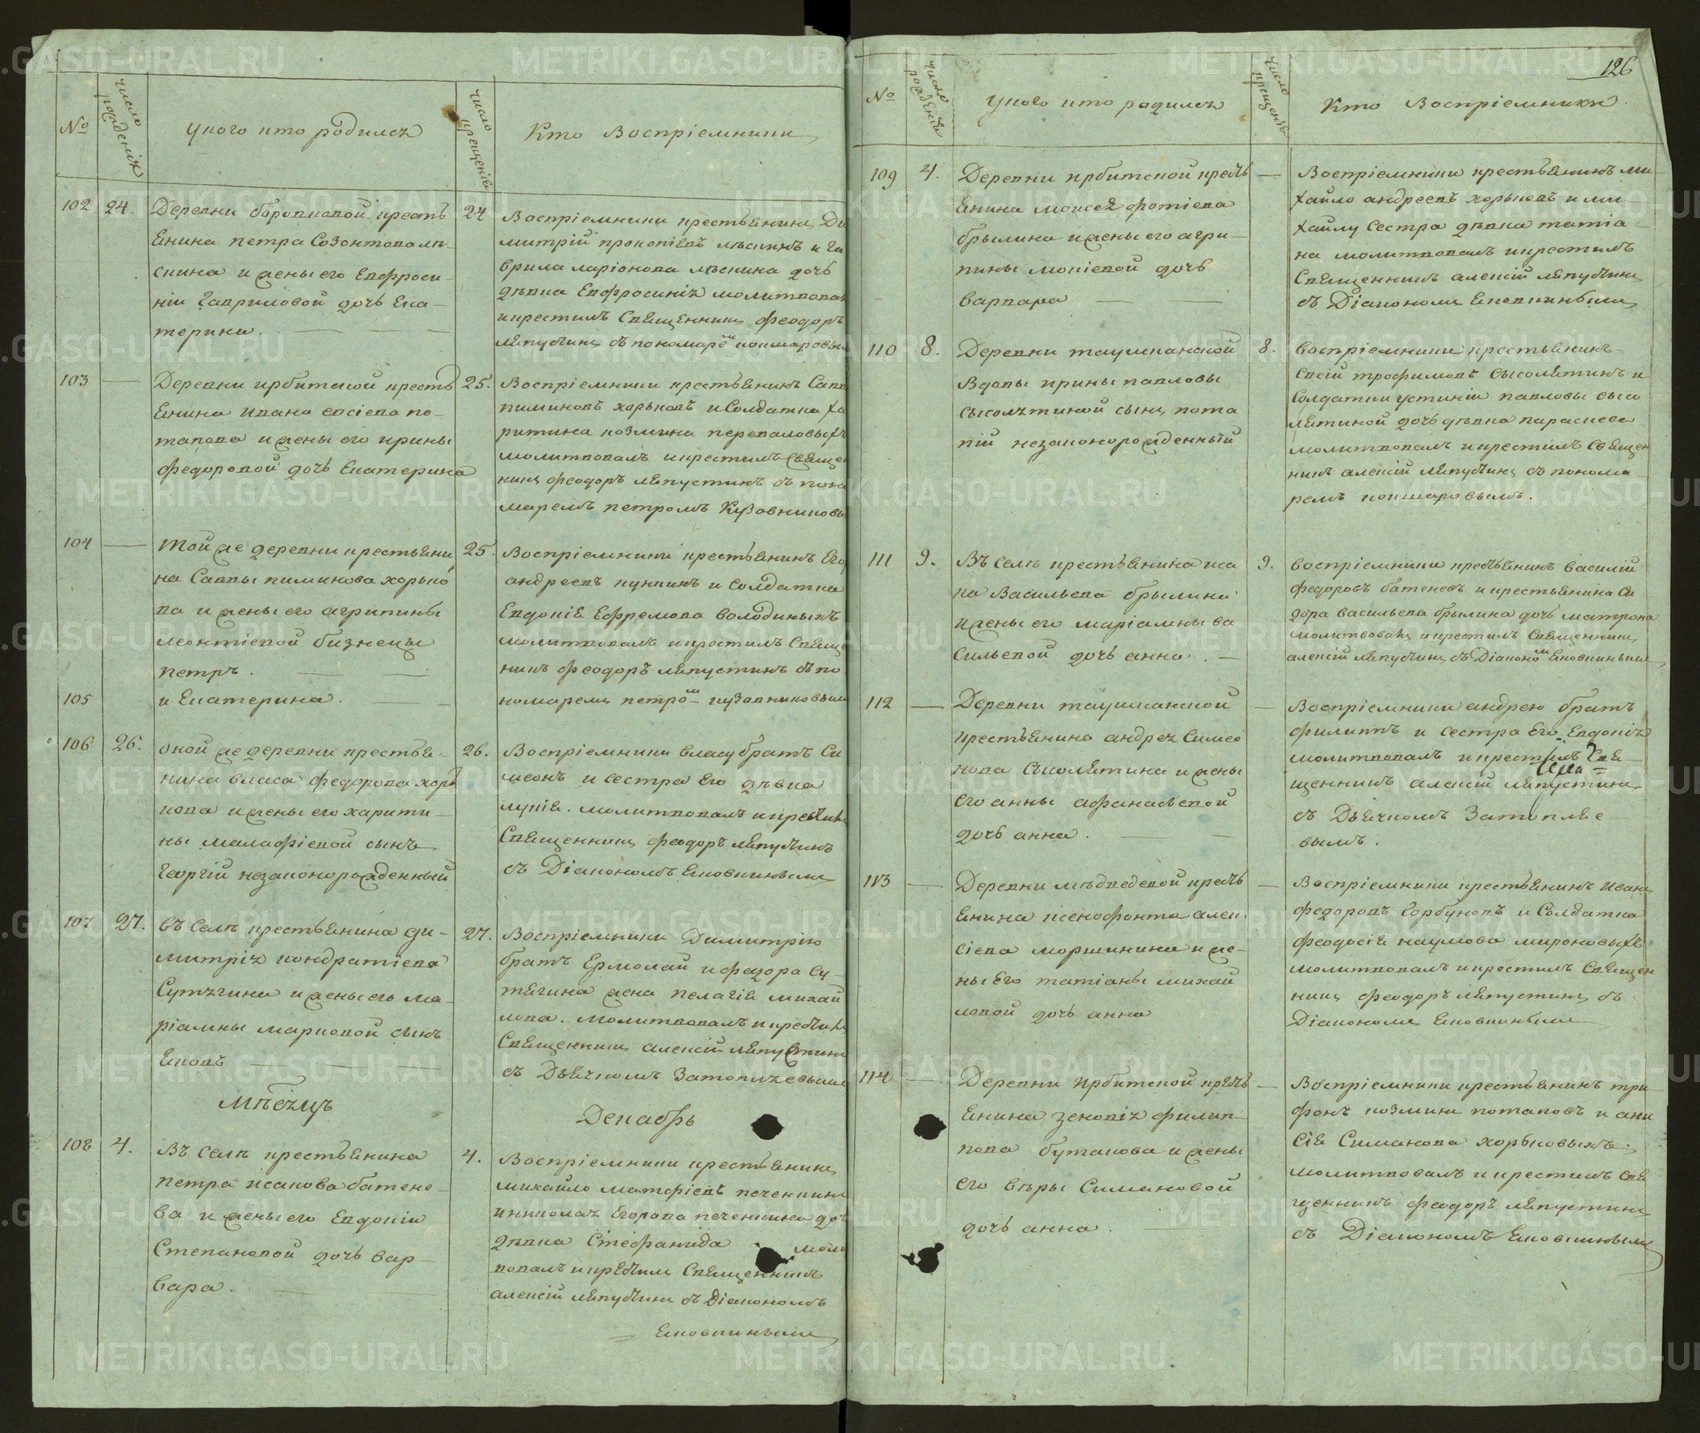 №
число рожденія
У кого кто родился
число крещенія
Кто Воспріемники
102
24.
Деревни боровковой кресть
янина петра Созонтова мя-
снина и жены его Евфроси-
ніи Гавриловой дочь Ека-
терина.
24
Воспріемники крестьянина Ди
митрій прокопіевъ мясинъ и га
врила ларіонова мясина дочь
дѣвка Евфросинія молитвовал
и крестилъ Священникъ феодоръ
ляпустинъ съ пономаремъ кокшаровым
103
Деревни ирбитской кресть
янина ивана евсіева по-
тапова и жены его ирины
федоровой дочь Екатерина
25.
Воспріемники крестьянинъ Савв
пиминовъ хорьковъ и Солдатка ха
ритина козмина переваловыхъ
молитвовалъ и крестилъ Священ
никъ феодоръ ляпустинъ съ поно
маремъ петромъ Кузовниковы
104
той же деревни крестьяни
на Саввы пиминова хорько
ва и жены его агрипины
леонтіевой близнецы
петръ.
25.
Воспріемники крестьянинъ Его
андреевъ кункинъ и Солдатка
Евдокія Ефремова володиныхъ
молитвовалъ и крестилъ Свяще
никъ феодоръ ляпустинъ съ по
номаремъ петромъ кузовниковым
105
и Екатерина.
106
26.
оной же деревни крестья-
нина власа федорова хорь
кова и жены его харити-
ны малафіевой сынъ
георгій незаконорожденный
26.
Воспріемники власу братъ Си
меонъ и сестра его дѣвка
лукія. молитвовалъ и крестилъ
Священникъ феодоръ ляпустинъ
съ Діакономъ Словцинымъ
107
27.
въ селѣ крестьянина ди-
митрія кондратіева
Сутягина и жены его ма-
ріамны марковой сынъ
Яковъ
27.
Воспріемники Димитрію
братъ Ермолай и федора Су-
тягина жена пелагія михай
лова. молитвовалъ и крестилъ
Священникъ алексій ляпустинъ
съ Дьячкомъ Затопляевымъ
Мѣсяцъ
Декабрь
108
4.
Въ селѣ крестьянина
петра исакова батене-
ва и жены его Евдокіи
Степановой дочь вар-
вара.
4.
Воспріемники крестьянинъ
михайло матфіевъ печенкинъ
и николая Егорова печенкина доч
дѣвка Стефанида молит
вовалъ и крестилъ Священникъ
алексій ляпустинъ съ Діакономъ
Словцинымъ
126
№
число рожденія
У кого кто родился
число крещенія
Кто Воспріемники.
109
4.
Деревни ирбитской кресть
янина моисея фотіева
брылина и жены его агри-
пины мокіевой дочь
варвара
Воспріемники крестьянинъ ми
хайло андреевъ хорьковъ и ми-
хайлу сестра дѣвка татіа-
на молитвовалъ и крестилъ
Священникъ алексій ляпустинъ
съ Діакономъ Словцинымъ
110
8.
Деревни таушканской
Вдовы ирины павловы
Сысолятиной сынъ пота
пій незаконорожденный
8.
воспріемники крестьянинъ
Евсій трофимовъ Сысолятинъ и
Солдатки устиніи павловы сысо
лятиной дочь дѣвка параскева
молитвовалъ и крестилъ Священ
никъ алексій ляпустинъ съ понома
ремъ кокшаровымъ.
111
9.
Въ селѣ крестьянина иса
ка Васильева брылина
и жены его маріамны ва
сильевой дочь анна.
9.
воспріемники крестьянинъ василій
федоровъ батеневъ и крестьянина Си
дора васильева брылина дочь матрона
молитвовалъ и крестилъ Священникъ
алексій ляпустинъ съ Діакономъ Словцинымъ
112
Деревни таушканской
крестьянина андрея Симео
нова Сысолятина и жены
его анны афанасьевой
дочь анна.
Воспріемники андрею братъ
филиппъ и сестра Его Евдокія
молитвовалъ и крестилъ Свя-
щенникъ алексій ляпустинъ
съ Дьячкомъ Затопляе-
вымъ.
113
Деревни мѣдведевой кресть
янина ксенофонта алек-
сіева моршинина и же-
ны Его татіаны михай
ловой дочь анна
Воспріемники крестьянинъ Иванъ
федоровъ Горбуновъ и Солдатка
феодосія наумова мироновыхъ
молитвовалъ и крестилъ Священ
никъ феодоръ ляпустинъ съ
Діакономъ Словцинымъ
114
Деревни Ирбитской кресть
янина зеновія филип-
пова бутакова и жены
его вѣры Симановой
дочь анна.
Воспріемники крестьянинъ три-
фонъ козминъ потаповъ и ани
сія Симанова хорьковыхъ.
молитвовалъ и крестилъ Свя
щенникъ феодоръ ляпустинъ
съ Діакономъ Словцинымъ
METRIKI.GASO-URAL.RU